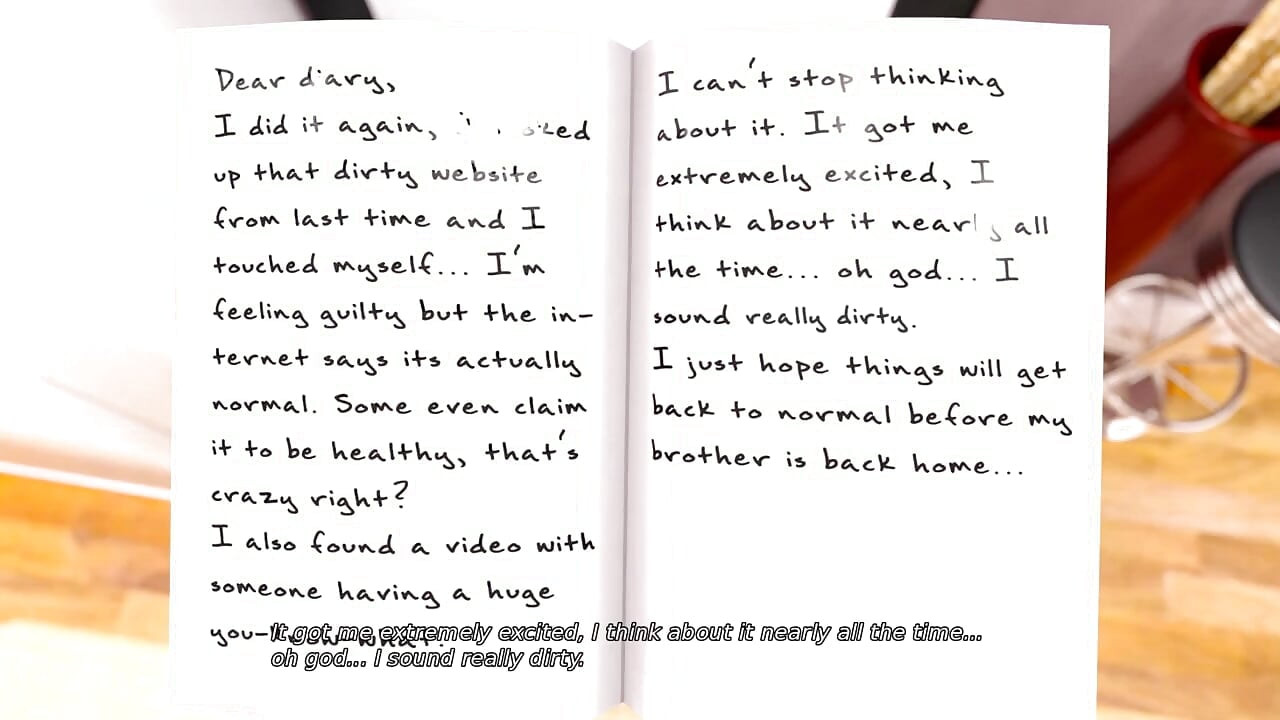 Dear diary,
I did it again,
up that dirty website
from last time and I
touched myself... I'm
feeling guilty but the in-
ternet says its actually
normal. Some even claim
it to be healthy, that's
crazy right?
I also found a video with
someone having a huge
you-
I can't stop thinking
about it. It got me
extremely excited, I
think about it nearly all
the time... oh god... I
sound really dirty.
I just hope things will get
back to normal before my
brother is back home...
It got me extremely excited, I think about it nearly all the time...
oh god... I sound really dirty.